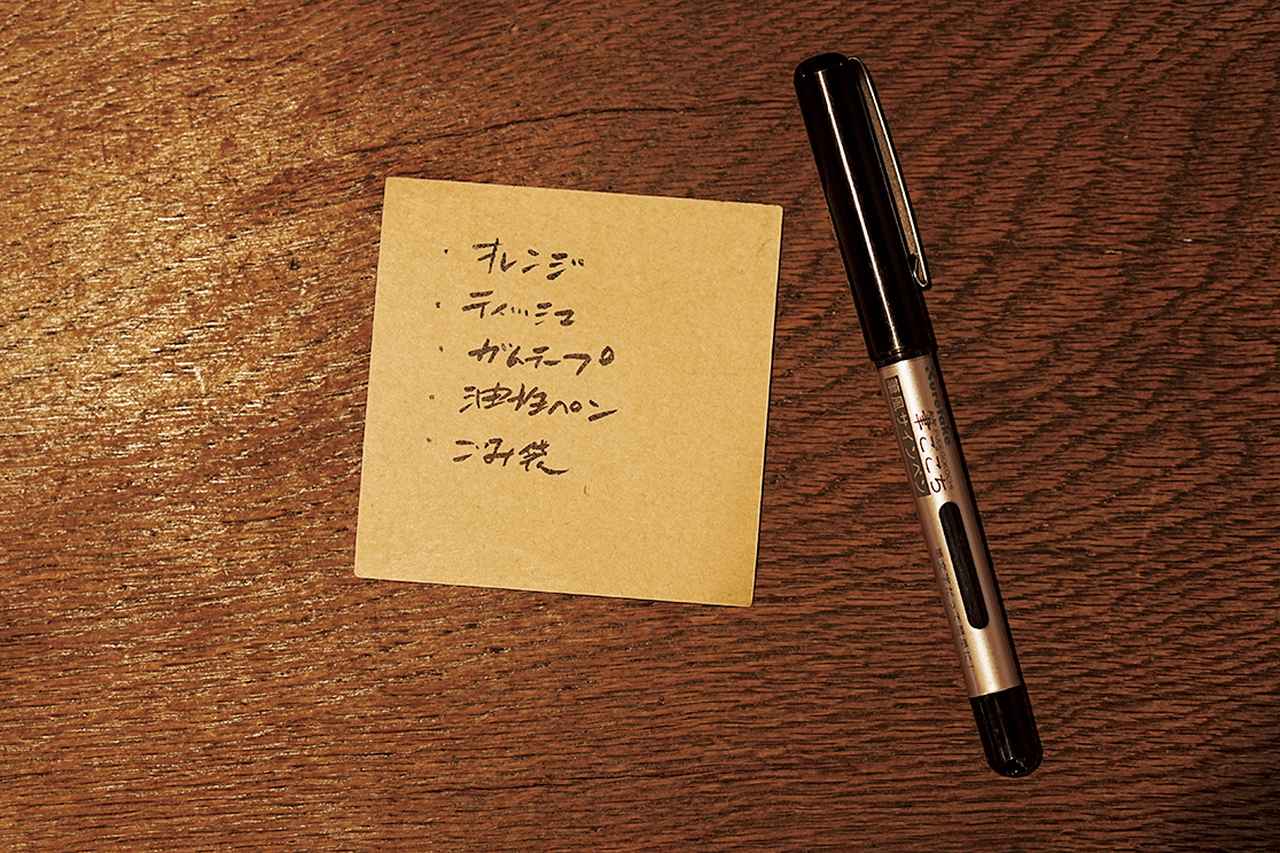 ・オレンジ
・ティッシュ
・ガムテープ
・油性ペン
・ごみ袋
筆ごこち
筆風サインペン